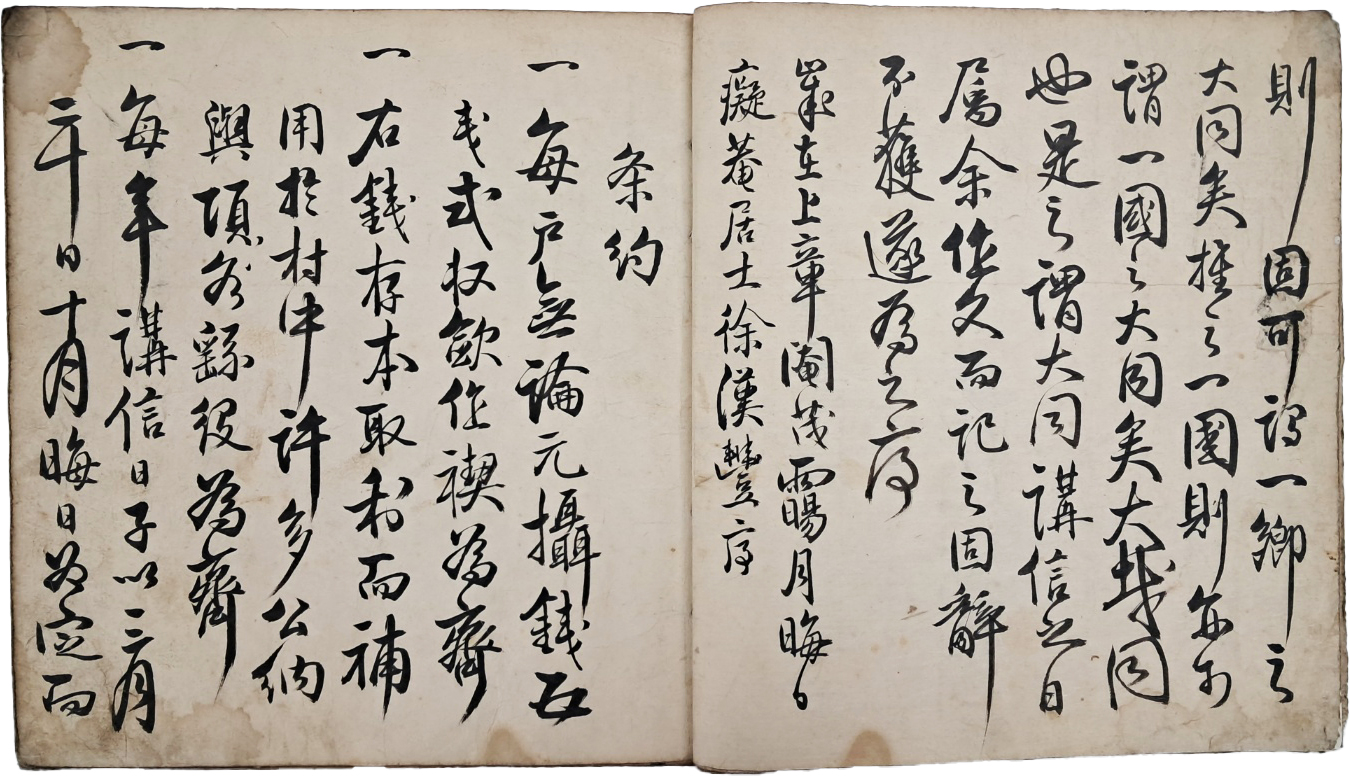 則 固可謂一鄉之
大同矣推之一國則亦可
謂一國之大同矣大哉同
也是之謂大同講信之日
屬余作文而記之固辭
不獲遂為之序
歲在上章閹茂霝暢月晦日
癡菴居士徐漢豐序
条約
一每戶無論元攝錢五
戔式收斂作禊為齊
一右錢存本取利而補
用於村中許多公納
與頉各繇役為齊
一每年講信日子以三月
三十日十月晦日為定而